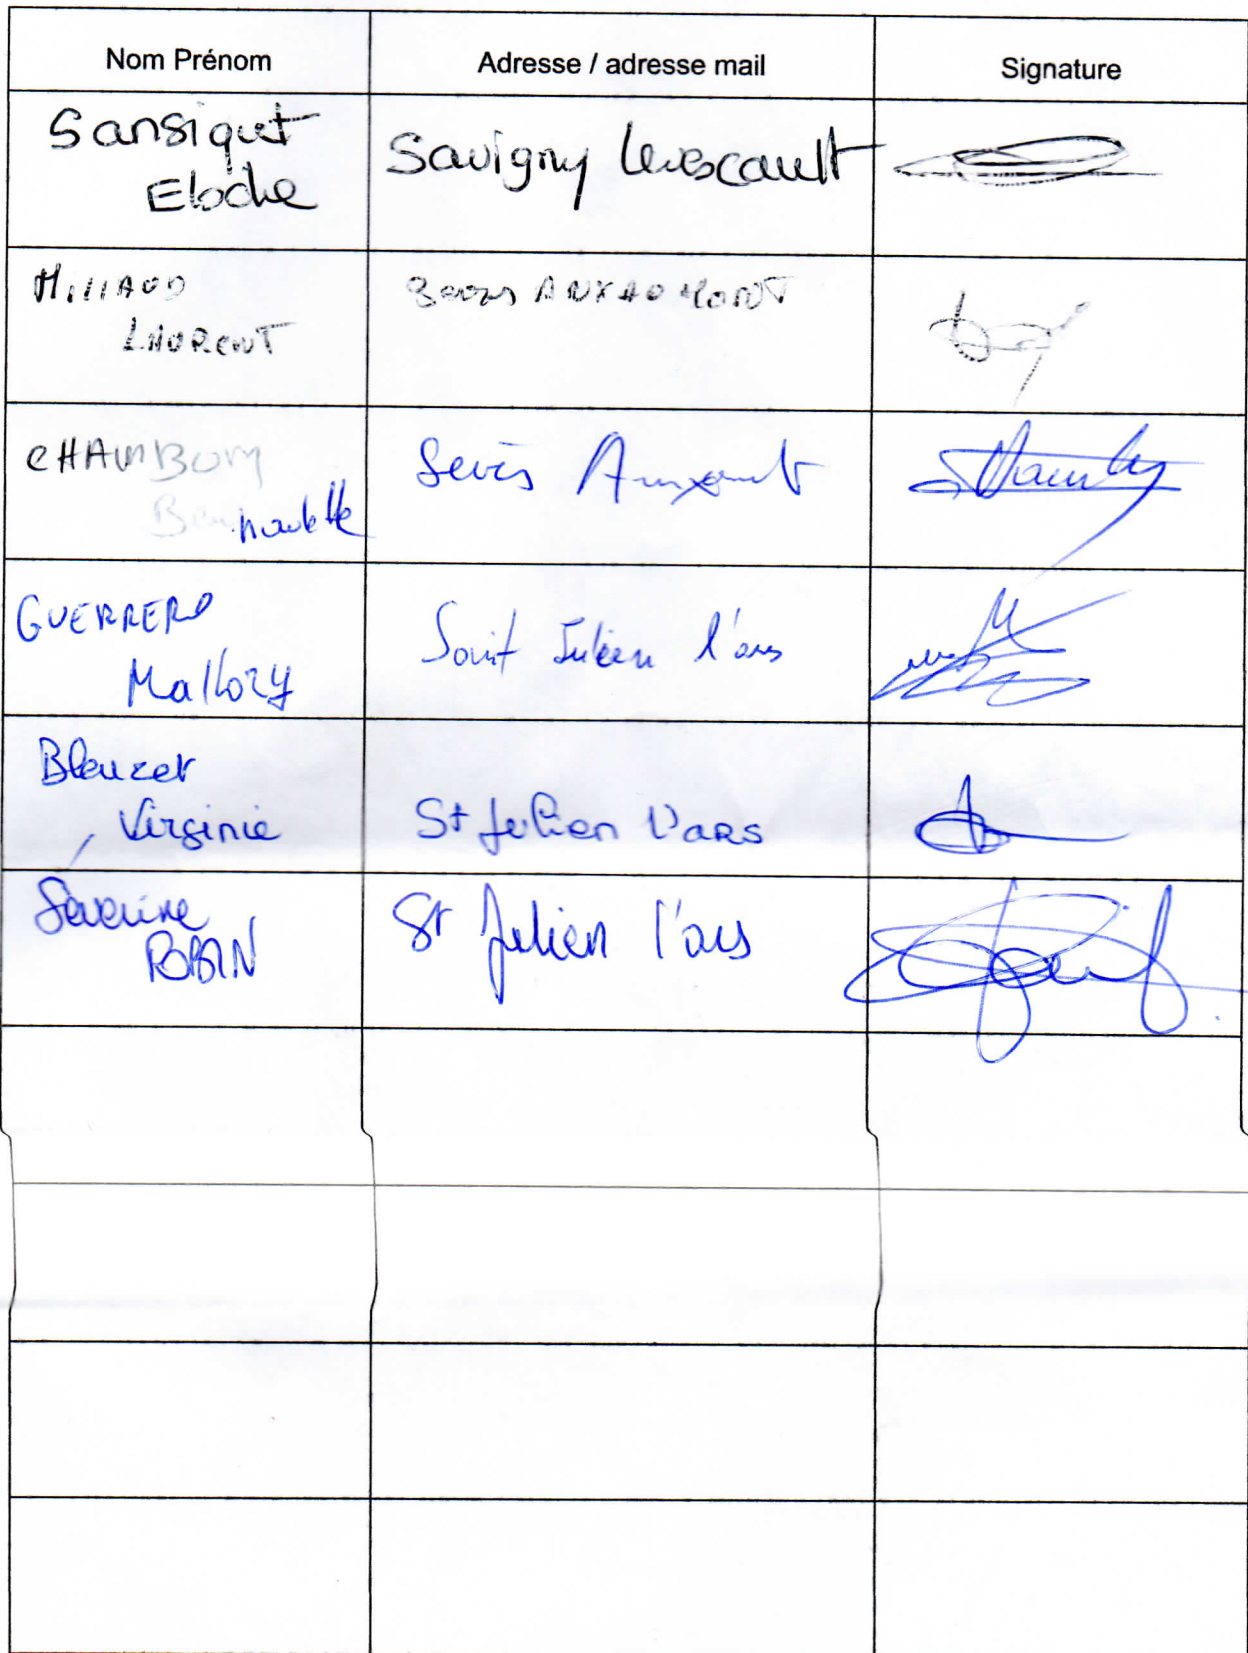 Nom Prénom
Adresse / adresse mail
Signature
Sansiquet
Elodie
Savigny Levescault
MILLAUD
LAURENT
Sevres ANXAUMONT
CHAMBON
Sevres Anxaumont
GUERRERO
Mallory
Saint Julien l'ars
Bleuzet
Virginie
St Julien l'ars
Séverine
ROBIN
St Julien l'ars